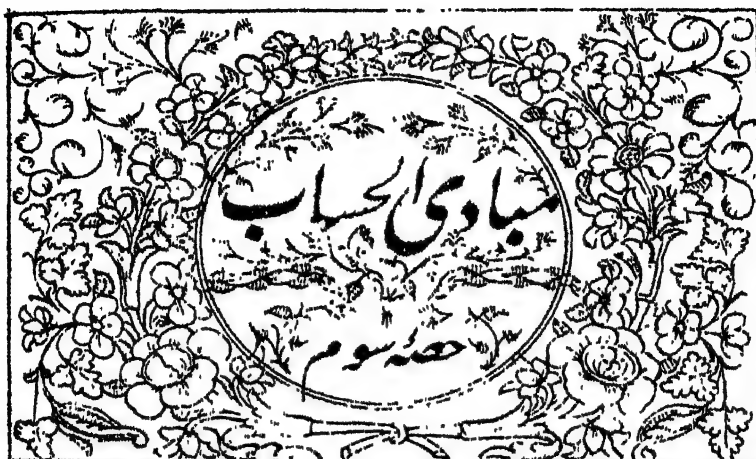 مبادی الحساب
حصۂ سوم